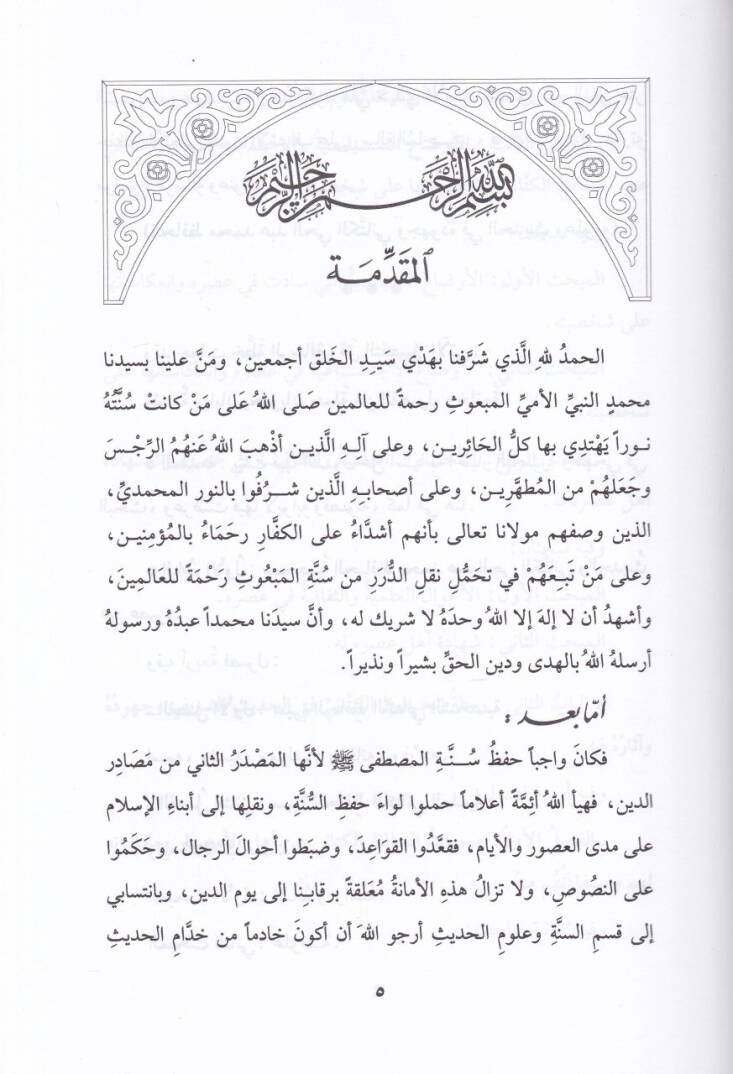 بسم الله الرحمن الرحيم
المقَدِّمَة
الحمدُ للهِ الَّذي شَرَّفنا بهَدْي سَيِّدِ الخَلق أجمعين، ومَنَّ علينا بسيدنا
محمدٍ النبيِّ الأميِّ المبعوثِ رحمةً للعالمين صَلى اللهُ عَلى مَنْ كانتْ سُنَّتُهُ
نوراً يَهْتِدِي بها كلُّ الحَائِرين، وعلى آلِهِ الَّذين أذْهبَ اللهُ عَنهُمُ الرِّجْسَ
وجَعَلَهُمْ من المُطهَّرِين، وعلى أصحابِهِ الَّذين شَرُفُوا بالنور المحمديِّ،
الذين وصفهم مولانا تعالى بأنهم أشدَّاءُ على الكفَّارِ رحمَاءُ بالمُؤمِنين،
وعلى مَنْ تَبعَهُمْ في تحَمُّلِ نقلِ الدُّرَرِ من سُنَّةِ المَبْعُوثِ رَحْمَةً للعَالمِينَ،
وأشهدُ أن لا إلهَ إلا اللهُ وحدَهُ لا شريك له، وأنَّ سيدَنا محمداً عبدُهُ ورسولهُ
أرسلهُ اللهُ بالهدى ودينِ الحقِّ بشيراً ونذيراً.
أمّا بعد:
فكانَ واجباً حفظُ سُنَّةِ المصطفى ﷺ لأنَّها المَصْدَرُ الثاني من مَصَادِر
الدين، فهيأ اللهُ أئِمَّةً أعلاماً حملوا لواءَ حفظِ السُّنَّةِ، ونقلِها إلى أبناءِ الإسلام
على مدى العصور والأيام، فقعَّدُوا القوَاعِدَ، وضبَطوا أحوالَ الرجال، وحَكَمُوا
على النصُوصِ، ولا تزالُ هذِهِ الأمانةُ مُعَلقةً برقابنا إلى يوم الدين، وبانتسابي
إلى قسمِ السنَّةِ وعلومِ الحديثِ أرجو اللهَ أن أكونَ خادماً من خدَّامِ الحديثِ
٥